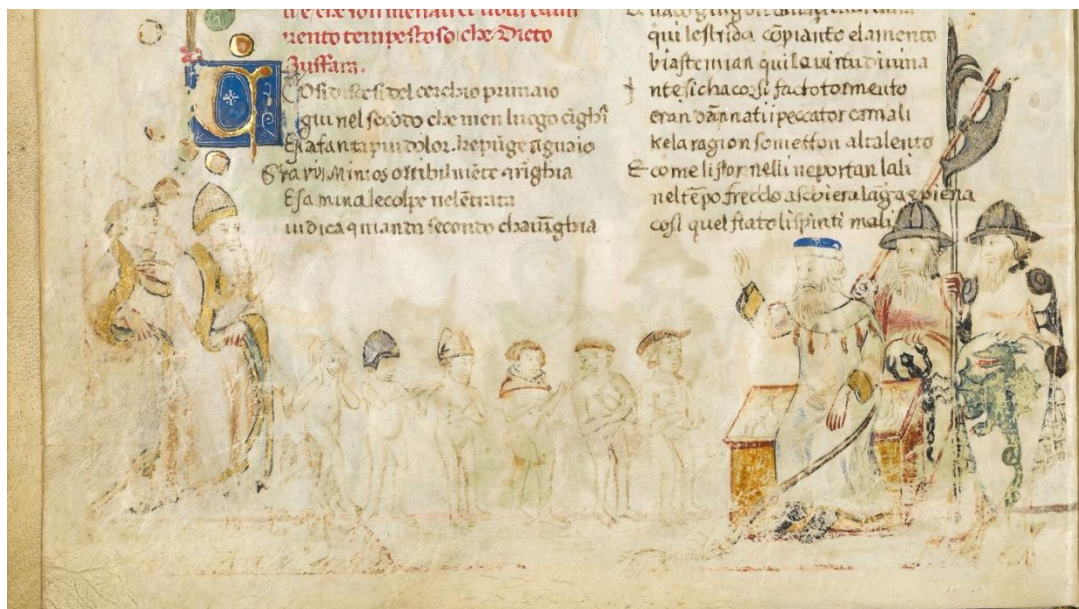 uento tempestoso che Dicto
Zuffara.
Cosi discesi del cerchio primaio
giu nel secōdo che men luogo cighī
piu dolor. ke pūge aguaio
Stavvi Minios orribilmēte righia
Esamina le colpe nelētrata
iudica manda secondo chauīghia
qui le strida cōpianto elamento
biastemian qui la uirtu diuina
ntesi cha cosi facto tormento
eran dānnati i peccator carnali
kela ragion sometton al talento
E come li stornelli ne portan lali
nel tēpo freddo aschiera larga e piena
cosi quel fiato li spirti mali